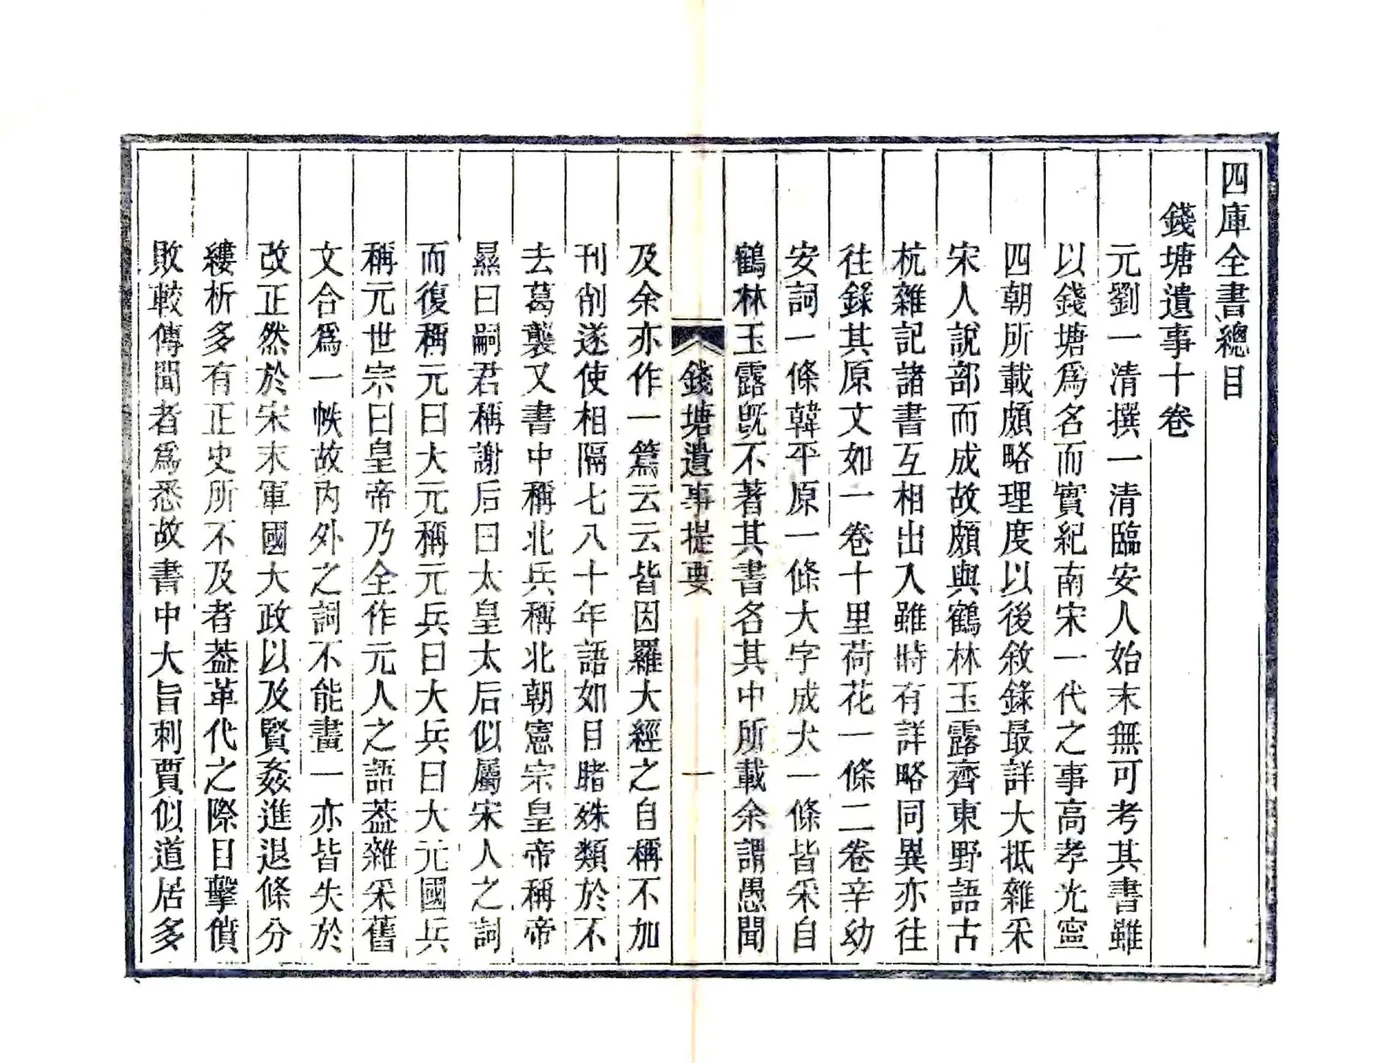 四庫全書總目
錢塘遺事十卷
元劉一清撰一清臨安人始末無可考其書雖
以錢塘爲名而實紀南宋一代之事高孝光寧
四朝所載頗略理度以後敘錄最詳大抵雜采
宋人說部而成故頗與鶴林玉露齊東野語古
杭雜記諸書互相出入雖時有詳略同異亦往
往錄其原文如一卷十里荷花一條二卷辛幼
安詞一條韓平原一條大字成犬一條皆采自
鶴林玉露旣不著其書名其中所載余謂愚聞
錢塘遺事提要
一
及余亦作一篇云云皆因羅大經之自稱不加
刊削遂使相隔七八十年語如目睹殊類於不
去葛龔又書中稱北兵稱北朝憲宗皇帝稱帝
㬎曰嗣君稱謝后曰太皇太后似屬宋人之詞
而復稱元曰大元稱元兵曰大兵曰大元國兵
稱元世宗曰皇帝乃全作元人之語葢雜采舊
文合爲一帙故內外之詞不能畫一亦皆失於
改正然於宋末軍國大政以及賢姦進退條分
縷析多有正史所不及者葢革代之際目擊僨
敗較傳聞者爲悉故書中大旨刺賈似道居多